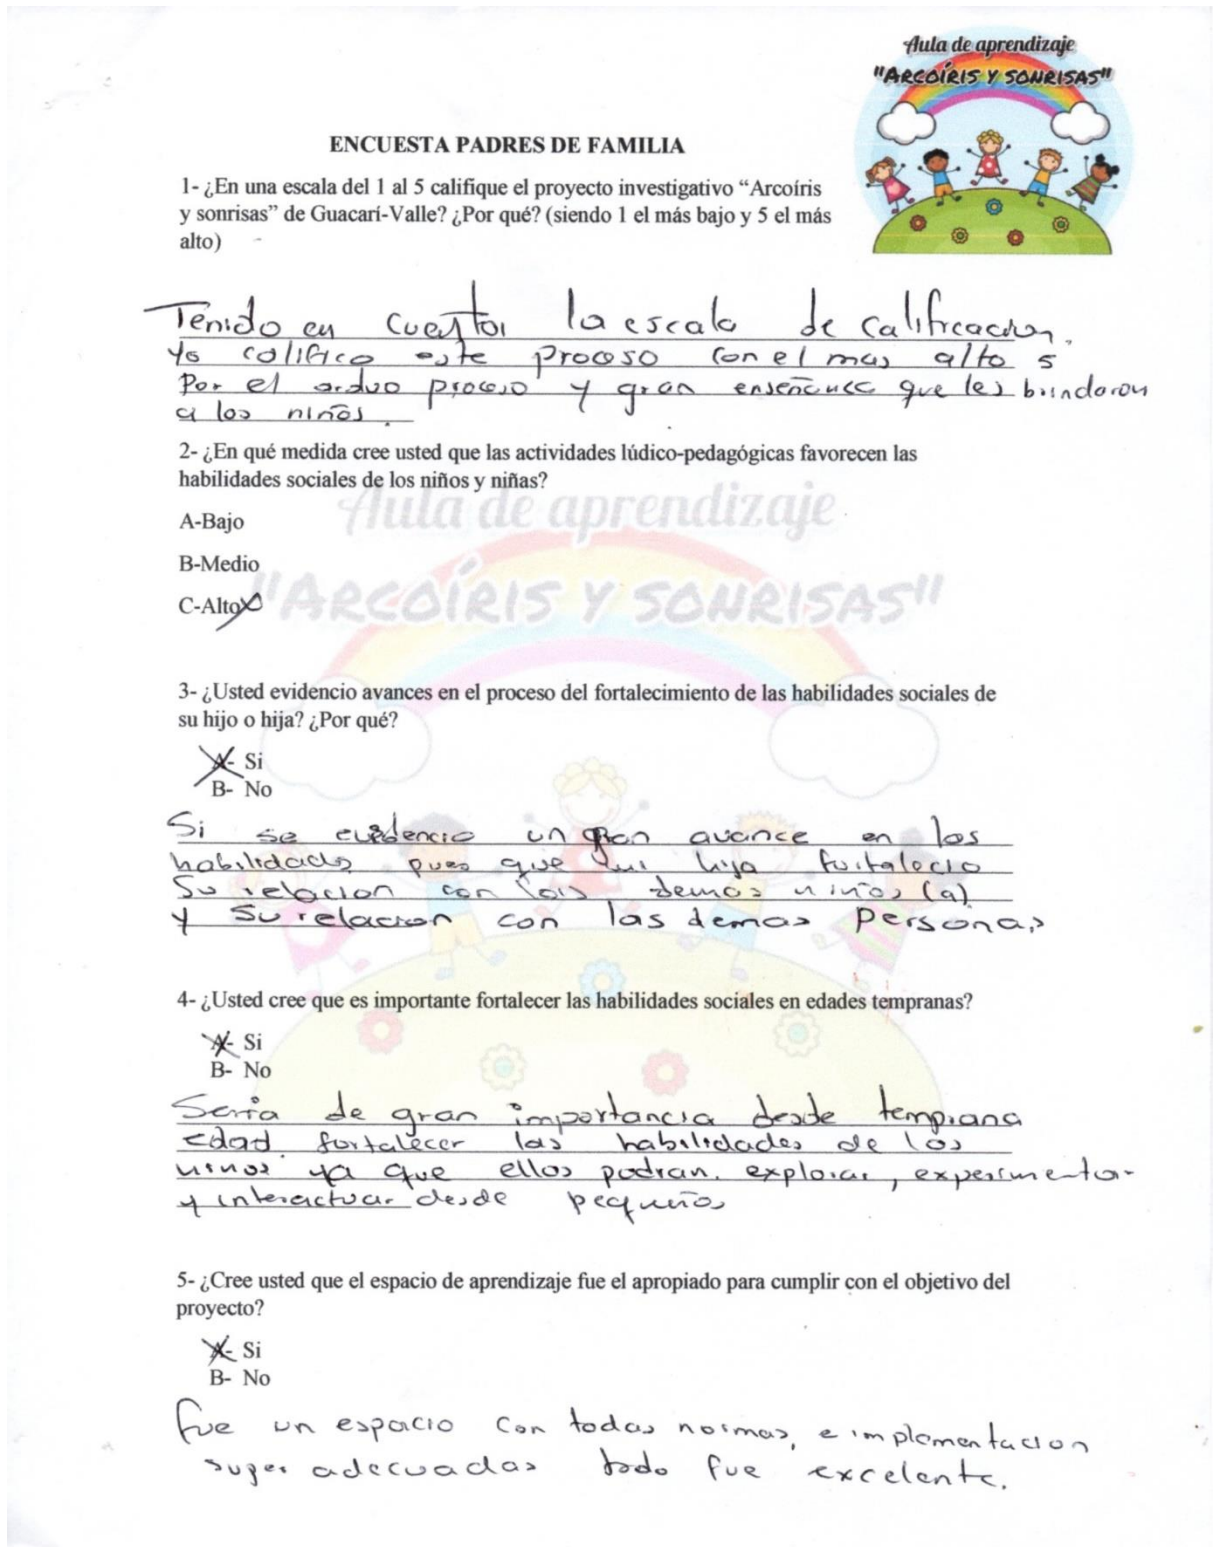 Aula de aprendizaje
"ARCOÍRIS Y SONRISAS"
ENCUESTA PADRES DE FAMILIA
1- ¿En una escala del 1 al 5 califique el proyecto investigativo “Arcoíris
y sonrisas” de Guacarí-Valle? ¿Por qué? (siendo 1 el más bajo y 5 el más
alto)
Tenido en cuenta la escala de calificacion.
Yo califico este proceso con el mas alto 5
Por el arduo proceso y gran enseñanza que les brindaron
a los niños.
2- ¿En qué medida cree usted que las actividades lúdico-pedagógicas favorecen las
habilidades sociales de los niños y niñas?
Aula de aprendizaje
A-Bajo
B-Medio
"ARCOÍRIS Y SONRISAS"
C-Alto X
3- ¿Usted evidencio avances en el proceso del fortalecimiento de las habilidades sociales de
su hijo o hija? ¿Por qué?
A- Si
B- No
Si se evidencio un gran avance en las
habilidades pues que mi hija fortalecio
Su relacion con los demas niños (a)
y su relacion con las demas personas
4- ¿Usted cree que es importante fortalecer las habilidades sociales en edades tempranas?
A- Si
B- No
Seria de gran importancia desde temprana
edad fortalecer las habilidades de los
ninos ya que ellos podran. explorar, experimentar
y interactuar desde pequeños
5- ¿Cree usted que el espacio de aprendizaje fue el apropiado para cumplir con el objetivo del
proyecto?
A- Si
B- No
fue un espacio con todas normas, e implementacion
super adecuadas todo fue excelente.